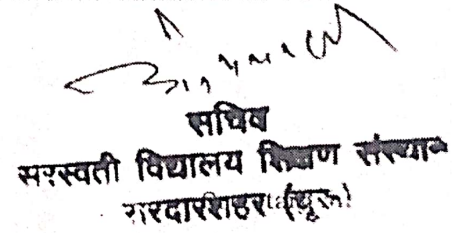 सचिव
सरस्वती विद्यालय शिक्षण संस्थान
सरदारशहर (चूरू)